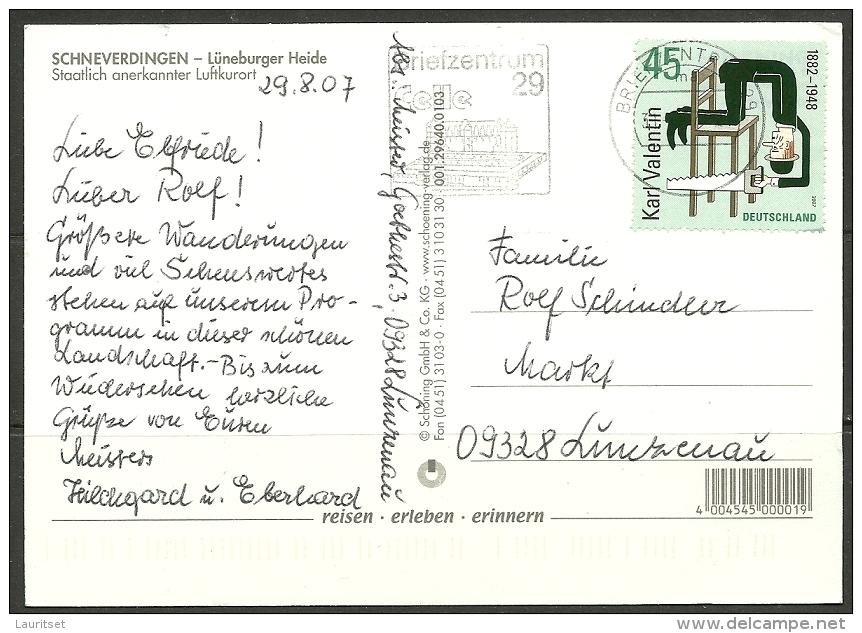 SCHNEVERDINGEN – Lüneburger Heide
Staatlich anerkannter Luftkurort
29.8.07
Liebe Elfriede!
Lieber Rolf!
Größere Wanderungen
und viel Sehenswertes
stehen auf unserem Pro-
gramm in dieser schönen
Landschaft. - Bis zum
Wiedersehen herzliche
Grüße von Euren
Meisters
Hildegard u. Eberhard
Abs.: Meister, Goethestr. 3, 09328 Lunzenau
© Schöning GmbH & Co. KG · www.schoening-verlag.de
Fon (0451) 3103-0 · Fax (0451) 3103130 · 001.29640.0103
Briefzentrum
29
Celle
BRIEFZENTRUM 29
45
1882–1948
Karl Valentin
2007
DEUTSCHLAND
Familie
Rolf Schindler
Markt
09328 Lunzenau
4 004545 000019
reisen · erleben · erinnern
Lauritset
delcampe.net